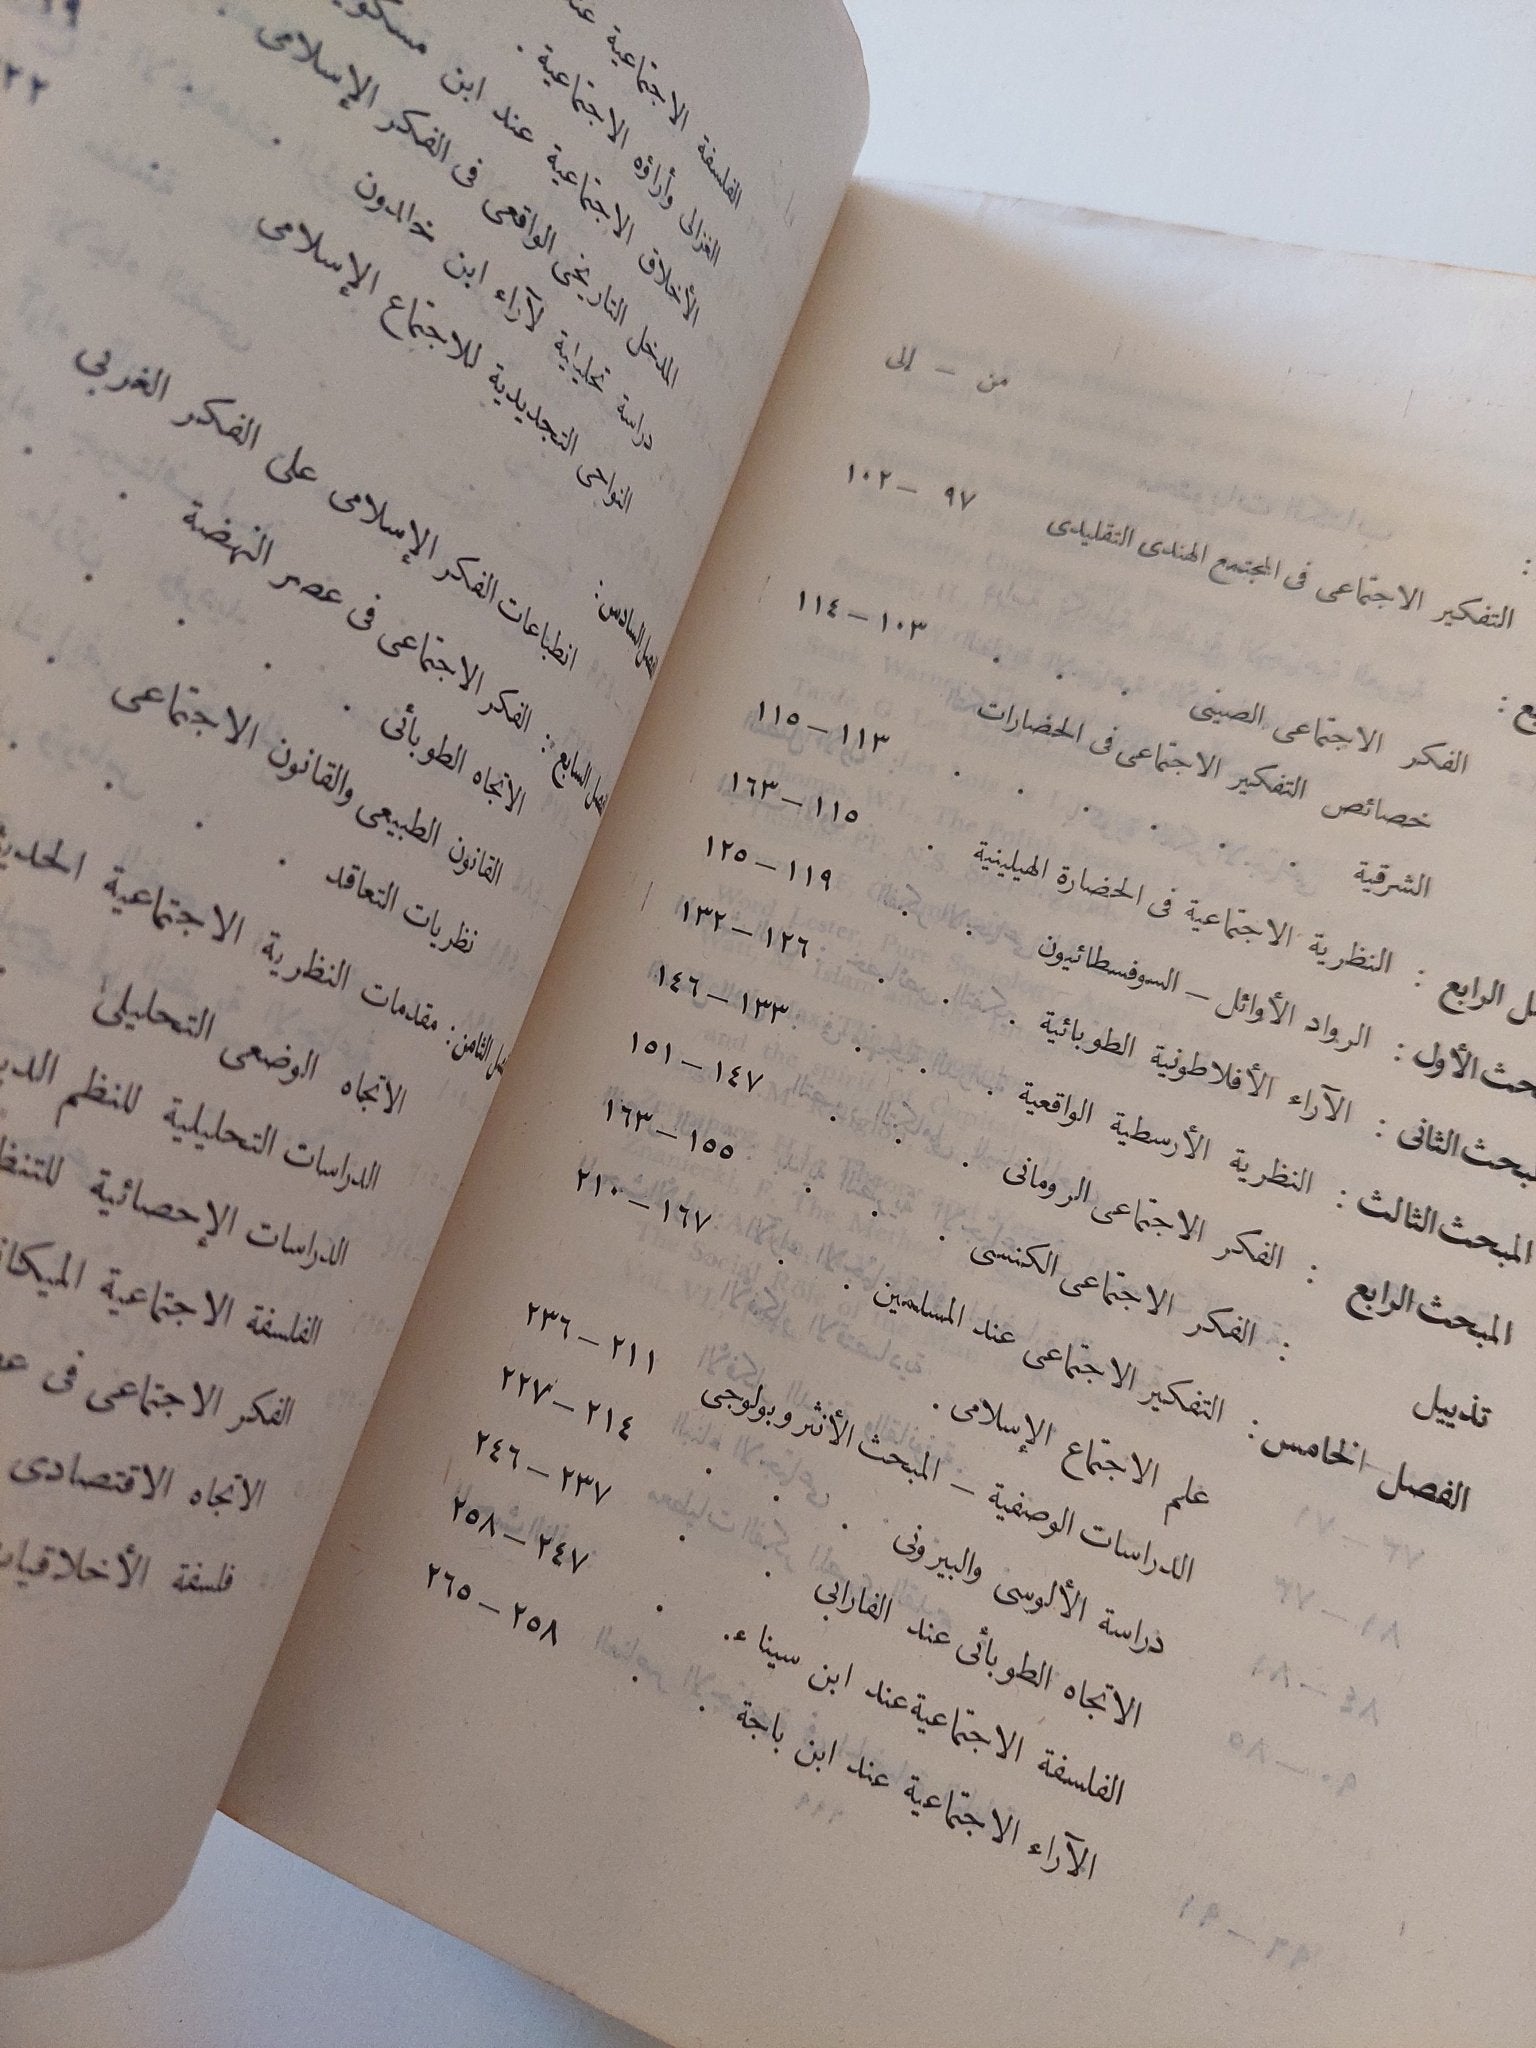 من – إلى
:
التفكير الاجتماعى فى المجتمع الهندى التقليدى ٩٧ – ١٠٢
:
الفكر الاجتماعى الصينى . . . ١٠٣ – ١١٤
خصائص التفكير الاجتماعى فى الحضارات
الشرقية . . . . . . ١١٣ – ١١٥
الرابع : النظرية الاجتماعية فى الحضارة الهيلينية . ١١٥ – ١٦٣
الأول : الرواد الأوائل – السوفسطائيون . . ١١٩ – ١٢٥
المبحث الثانى : الآراء الأفلاطونية الطوبائية . . . ١٢٦ – ١٣٢
المبحث الثالث : النظرية الأرسطية الواقعية . . . ١٣٣ – ١٤٦
المبحث الرابع : الفكر الاجتماعى الرومانى . . . ١٤٧ – ١٥١
تذييل : الفكر الاجتماعى الكنسى . . . ١٥٥ – ١٦٣
الفصل الخامس : التفكير الاجتماعى عند المسلمين . . ١٦٧ – ٢١٠
علم الاجتماع الإسلامى .
الدراسات الوصفية – المبحث الأنثروبولوجى ٢١١ – ٢٣٦
دراسة الألوسى والبيرونى . . . ٢١٤ – ٢٢٧
الاتجاه الطوبائى عند الفارابى . . ٢٣٧ – ٢٤٦
الفلسفة الاجتماعية عند ابن سيناء . . ٢٤٧ – ٢٥٨
الآراء الاجتماعية عند ابن باجة . . ٢٥٨ – ٢٦٥
الفلسفة الاجتماعية
الغزالى وأراؤه الاجتماعية .
الأخلاق الاجتماعية عند ابن
المدخل التاريخى الواقعى فى الفكر الإسلامى
دراسة تحليلية لآراء ابن خالدون
النواحى التجديدية للاجتماع الإسلامى
السادس : انطباعات الفكر الإسلامى على الفكر الغربى
السابع : الفكر الاجتماعى فى عصر النهضة
الاتجاه الطوبائى
القانون الطبيعى والقانون الاجتماعى
نظريات التعاقد
الثامن : مقدمات النظرية الاجتماعية
الاتجاه الوضعى التحليلى
الدراسات التحليلية للنظم
الدراسات الإحصائية
الفلسفة الاجتماعية
الفكر الاجتماعى فى
الاتجاه الاقتصادى
فلسفة